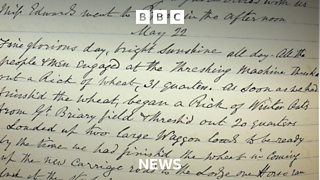 Miss Edwards went to in the afternoon
BBC
May 22
Fine glorious day, bright Sunshine all day. All the
people & Men Engaged at the Threshing Machine
out a Rick of Wheat, 31 Quarters. As soon as we had
finish'd the wheat, began a Rick of Winter Oats
from Gt. Briary field & Thresh'd out 20 Quarters
Loaded up two large Waggon loads to be ready
by the time we had finished the wheat in coming
up the new Carriage road in the Lodge one Horse
NEWS